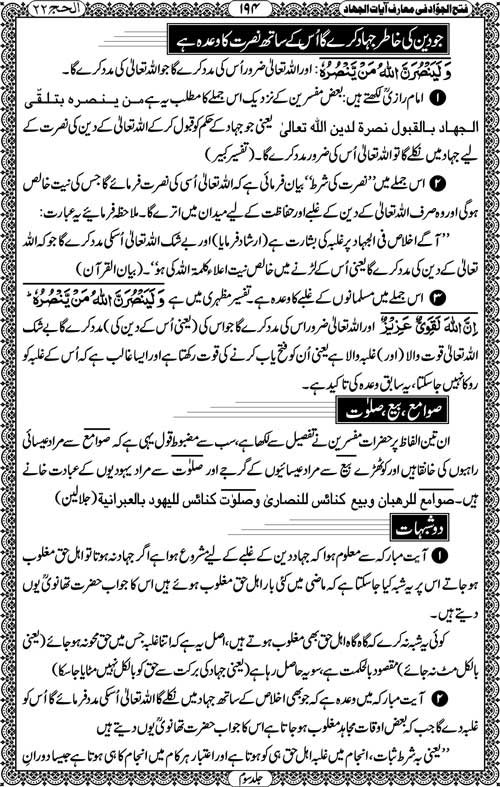 فتح الجوّاد فی معارف آیات الجهاد
۱۹۴
الحج ۲۲
جو دین کی خاطر جہاد کرے گا اُس کے ساتھ نصرت کا وعدہ ہے
وَلَیَنْصُرَنَّ اللّٰهُ مَنْ یَّنْصُرُهٗ: اور اللہ تعالیٰ ضرور اُس کی مدد کرے گا جو اللہ تعالیٰ کی مدد کرے گا۔
❶ امام رازیؒ لکھتے ہیں: بعض مفسرین کے نزدیک اس جملے کا مطلب یہ ہے من ینصره بتلقّی
الجهاد بالقبول نصرة لدین الله تعالیٰ یعنی جو جہاد کے حکم کو قبول کر کے اللہ تعالیٰ کے دین کی نصرت کے
لیے جہاد میں نکلے گا تو اللہ تعالیٰ اُس کی ضرور مدد کرے گا۔ (تفسیر کبیر)
❷ اس جملے میں ’’نصرت کی شرط‘‘ بیان فرمائی ہے کہ اللہ تعالیٰ اُسی کی نصرت فرمائے گا جس کی نیت خالص
ہوگی اور وہ صرف اللہ تعالیٰ کے دین کے غلبے اور حفاظت کے لیے میدان میں اترے گا۔ ملاحظہ فرمائیے یہ عبارت:
’’آگے اخلاص فی الجہاد پر غلبہ کی بشارت ہے (ارشاد فرمایا) اور بے شک اللہ تعالیٰ اُسکی مدد کرے گا جو کہ اللہ
تعالیٰ کے دین کی مدد کرے گا یعنی اُس کے لڑنے میں خالص نیت اعلاء کلمۃ اللہ کی ہو‘‘۔ (بیان القرآن)
❸ اس جملے میں مسلمانوں کے غلبے کا وعدہ ہے۔ تفسیر مظہری میں ہے وَلَیَنْصُرَنَّ اللّٰهُ مَنْ یَّنْصُرُهٗ ؕ
اِنَّ اللّٰهَ لَقَوِیٌّ عَزِیْزٌ اور اللہ تعالیٰ ضرور اس کی مدد کرے گا جو اس کی (یعنی اُس کے دین کی) مدد کرے گا بے شک
اللہ تعالیٰ قوت والا (اور) غلبہ والا ہے یعنی اُن کو فتح یاب کرنے کی قوت رکھتا ہے اور ایسا غالب ہے کہ اُس کے غلبہ کو
روکا نہیں جا سکتا، یہ سابق وعدہ کی تاکید ہے۔
صوامع، بیع، صلوٰت
ان تین الفاظ پر حضرات مفسرین نے تفصیل سے لکھا ہے، سب سے مضبوط قول یہی ہے کہ صوامع سے مراد عیسائی
راہبوں کی خانقاہیں اور کوٹھڑے بیع سے مراد عیسائیوں کے گرجے اور صلوٰت سے مراد یہودیوں کے عبادت خانے
ہیں۔ صوامع للرهبان وبیع کنائس للنصاری وصلوٰت کنائس للیهود بالعبرانیة (جلالین)
دو شبہات
❶ آیت مبارکہ سے معلوم ہوا کہ جہاد دین کے غلبے کے لیے مشروع ہوا ہے اگر جہاد نہ ہوتا تو اہل حق مغلوب
ہو جاتے اس پر یہ شبہ کیا جاسکتا ہے کہ ماضی میں کئی بار اہل حق مغلوب ہوئے ہیں اس کا جواب حضرت تھانویؒ یوں
دیتے ہیں۔
کوئی یہ شبہ نہ کرے کہ گاہ گاہ اہل حق بھی مغلوب ہوتے ہیں، اصل یہ ہے کہ اتنا غلبہ جس میں حق محو نہ ہو جائے (یعنی
بالکل مٹ نہ جائے) مقصود بالحکمت ہے، سو یہ حاصل رہا ہے (یعنی جہاد کی برکت سے حق کو بالکل نہیں مٹایا جاسکا)
❷ آیت مبارکہ میں وعدہ ہے کہ جو بھی اخلاص کے ساتھ جہاد میں نکلے گا اللہ تعالیٰ اُسکی مدد فرمائے گا اُس کو
غلبہ دے گا جب کہ بعض اوقات مجاہد مغلوب ہو جاتا ہے اس کا جواب حضرت تھانویؒ یوں دیتے ہیں
’’یعنی بہ شرط ثبات، انجام میں غلبہ اہل حق ہی کو ہوتا ہے اور اعتبار ہر کام میں انجام کا ہی ہوتا ہے جیسا دوران
جلد سوم